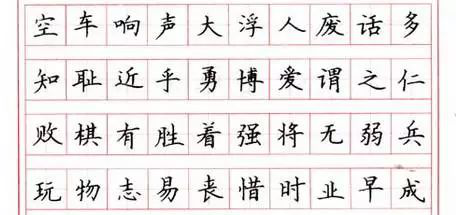 空车响声大浮人废话多
知耻近乎勇博爱谓之仁
败棋有胜着强将无弱兵
玩物志易丧惜时业早成